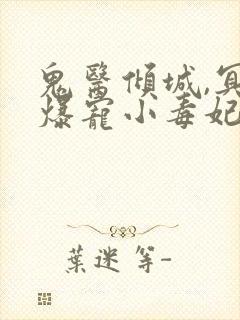 鬼醫傾城,冥
爆寵小毒妃
葉迷等-